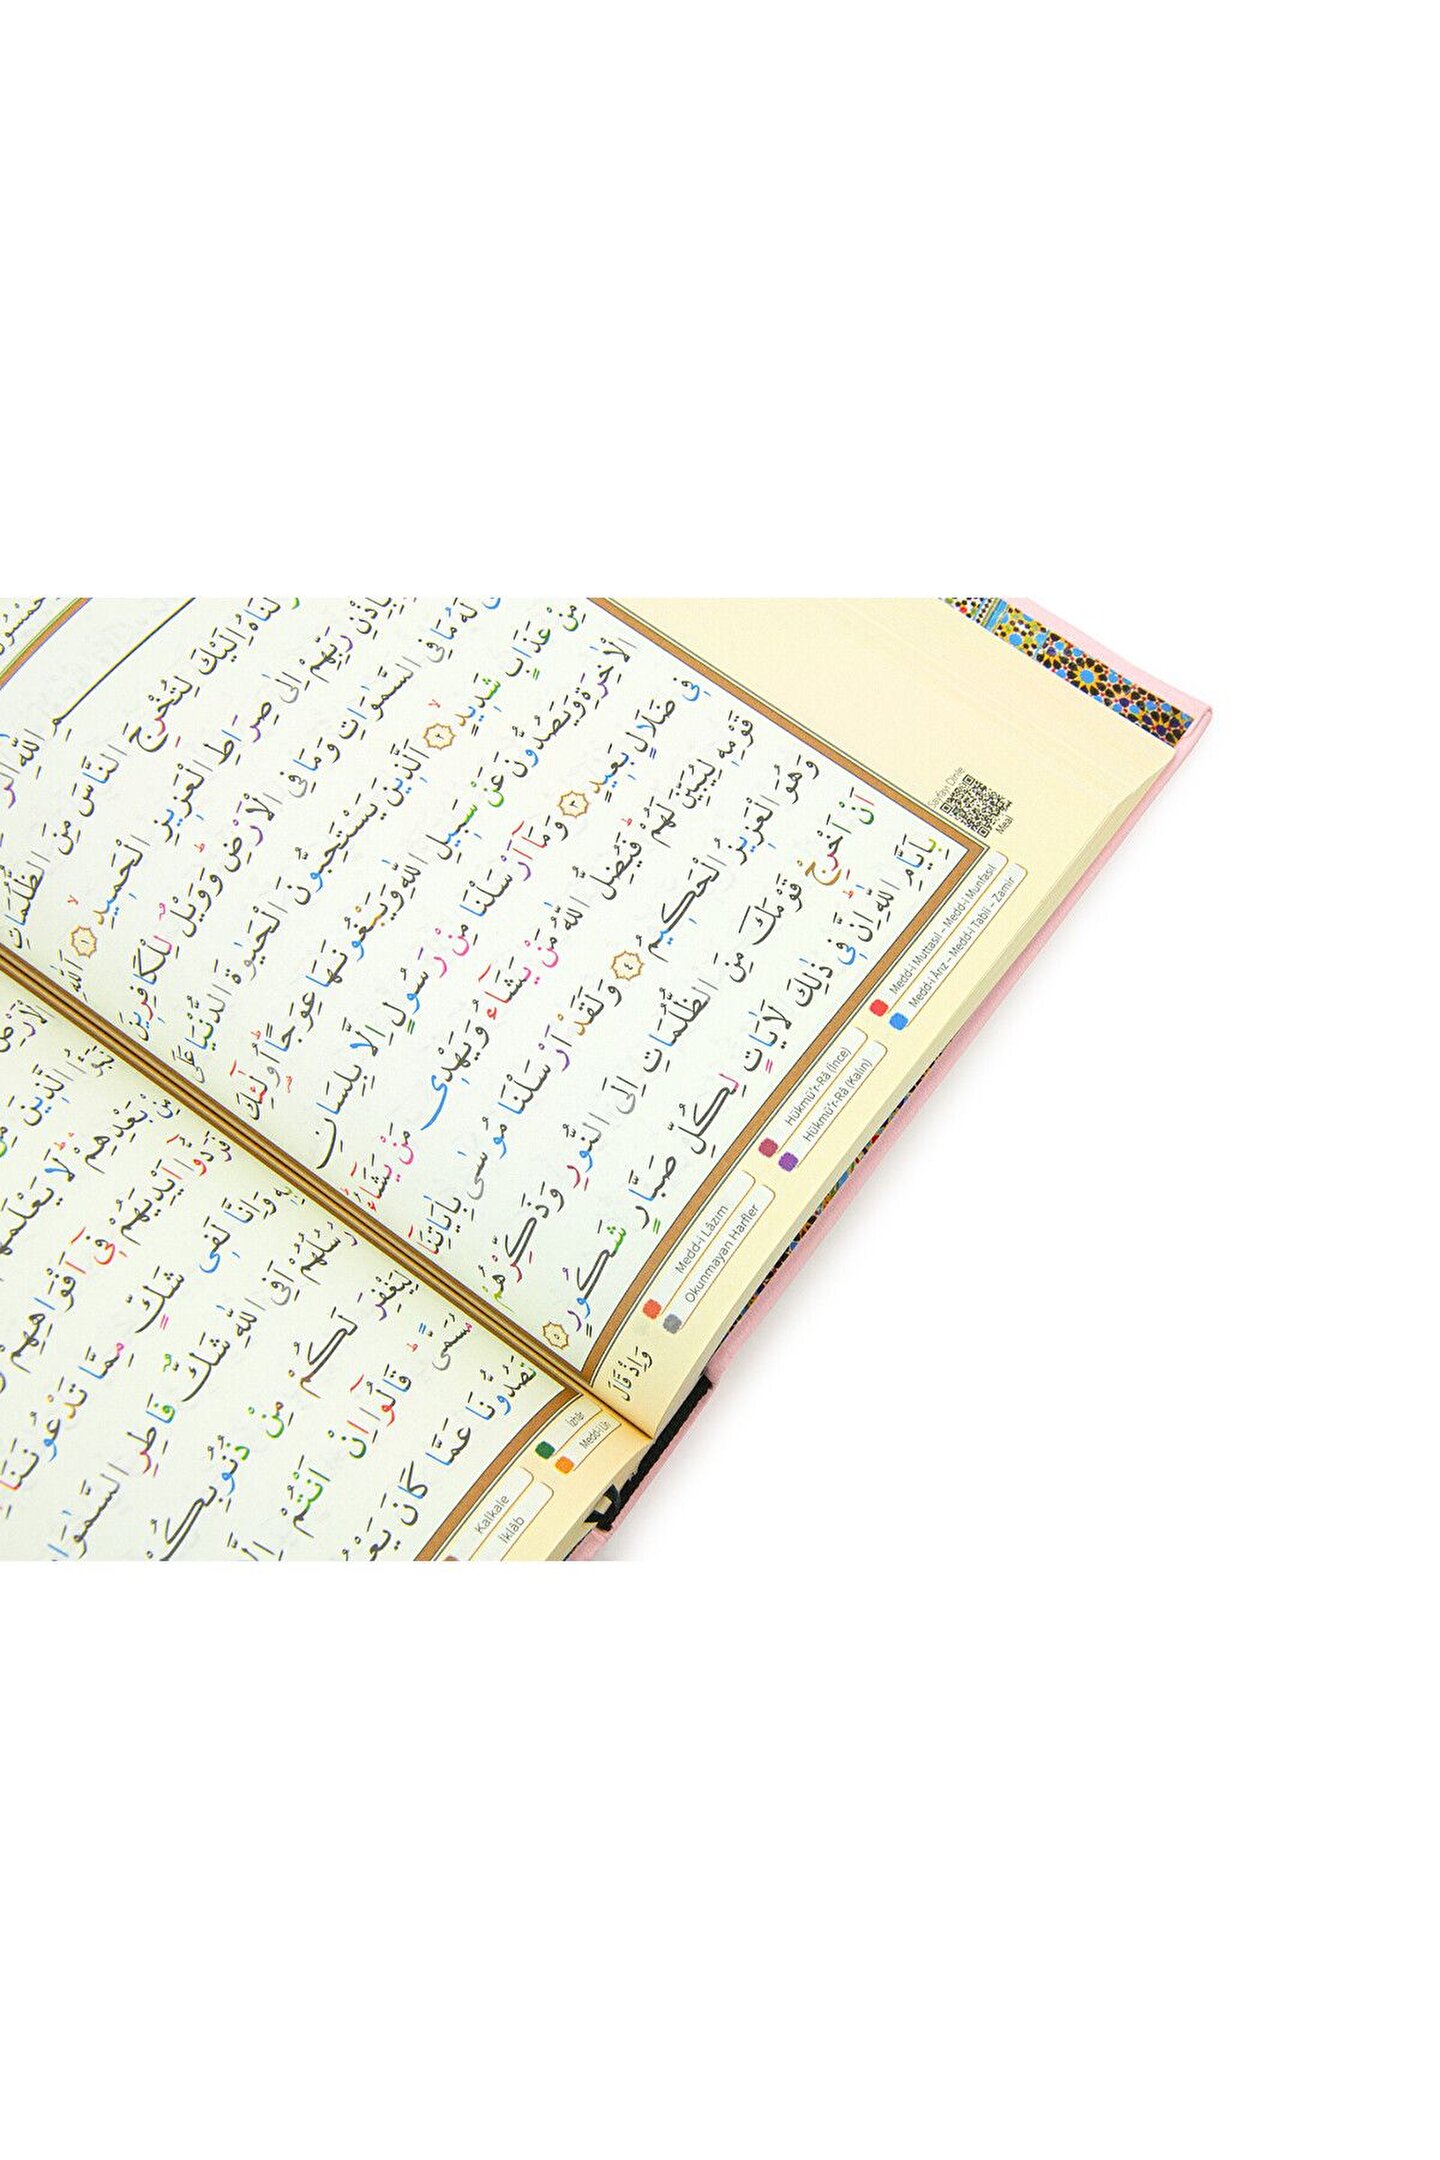 اِلَيْكَ لِتُخْرِجَ النَّاسَ مِنَ الظُّلُمَاتِ
بِاِذْنِ رَبِّهِمْ اِلٰى صِرَاطِ الْعَزِيزِ الْحَمِيدِ ١ اَللّٰهِ
لَهُ مَا فِى السَّمٰوَاتِ وَمَا فِى الْاَرْضِ وَوَيْلٌ لِلْكَافِرِينَ
مِنْ عَذَابٍ شَدِيدٍ ٢ اَلَّذِينَ يَسْتَحِبُّونَ الْحَيٰوةَ الدُّنْيَا عَلَى
الْاٰخِرَةِ وَيَصُدُّونَ عَنْ سَبِيلِ اللّٰهِ وَيَبْغُونَهَا عِوَجًا اُولٰٓئِكَ
فِى ضَلَالٍ بَعِيدٍ ٣ وَمَٓا اَرْسَلْنَا مِنْ رَسُولٍ اِلَّا بِلِسَانِ
قَوْمِهِ لِيُبَيِّنَ لَهُمْ فَيُضِلُّ اللّٰهُ مَنْ يَشَٓاءُ وَيَهْدِى مَنْ يَشَٓاءُ
وَهُوَ الْعَزِيزُ الْحَكِيمُ ٤ وَلَقَدْ اَرْسَلْنَا مُوسٰى بِاٰيَاتِنَٓا
اَنْ اَخْرِجْ قَوْمَكَ مِنَ الظُّلُمَاتِ اِلَى النُّورِ وَذَكِّرْهُمْ
بِاَيَّامِ اللّٰهِ اِنَّ فِى ذٰلِكَ لَاٰيَاتٍ لِكُلِّ صَبَّارٍ شَكُورٍ ٥
وَاِذْ قَالَ
Sayfayı Dinle
Meal
Medd-i Muttasıl – Medd-i Munfasıl
Medd-i Ârız – Medd-i Tabîî – Zamir
Hükmü'r-Râ (İnce)
Hükmü'r-Râ (Kalın)
Medd-i Lâzım
Okunmayan Harfler
وَالَّذِينَ مِنْ
بَعْدِهِمْ لَا يَعْلَمُهُمْ
اَيْدِيَهُمْ فِٓى اَفْوَاهِهِمْ
وَاِنَّا لَفِى شَكٍّ مِمَّا تَدْعُونَنَا
رُسُلُهُمْ اَفِى اللّٰهِ شَكٌّ فَاطِرِ السَّمٰوَاتِ
لِيَغْفِرَ لَكُمْ مِنْ ذُنُوبِكُمْ
قَالُٓوا اِنْ اَنْتُمْ اِلَّا
تَصُدُّونَا عَمَّا كَانَ
İzhâr
Medd-i Lîn
Kalkale
İklâb